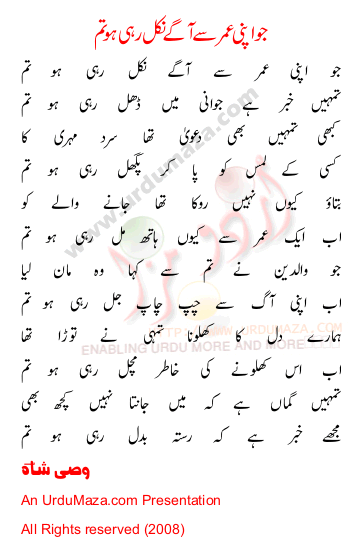 جو اپنی عمر سے آگے نکل رہی ہو تم
جو اپنی عمر سے آگے نکل رہی ہو تم
تمہیں خبر ہے جوانی میں ڈھل رہی ہو تم
کبھی تمہیں بھی دعویٰ تھا سرد مہری کا
کسی کے لمس کو پا کر پگھل رہی ہو تم
بتاؤ کیوں نہیں روکا تھا جانے والے کو
اب ایک عمر سے کیوں ہاتھ مل رہی ہو تم
جو والدین نے تم سے کہا وہ مان لیا
اب اپنی آگ سے چپ چاپ جل رہی ہو تم
ہمارے دل کا کھلونا تمہی نے توڑا تھا
اب اس کھلونے کی خاطر مچل رہی ہو تم
تمہیں گماں ہے کہ میں جانتا نہیں کچھ بھی
مجھے خبر ہے کہ رستہ بدل رہی ہو تم
وصی شاہ
An UrduMaza.com Presentation
All Rights reserved (2008)
www.urdumaza.com
اردو مزا
HTTP://WWW.URDUMAZA.COM
ENABLING URDU MORE AND MORE